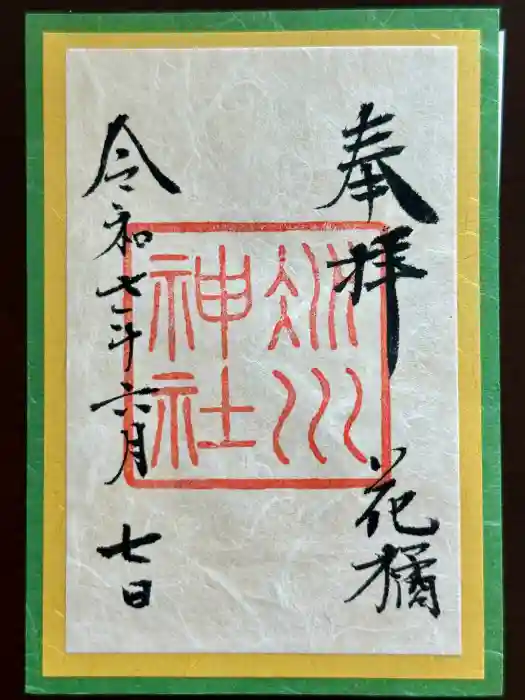 奉拝
花橘
氷川
神社
令和七年六月
七日